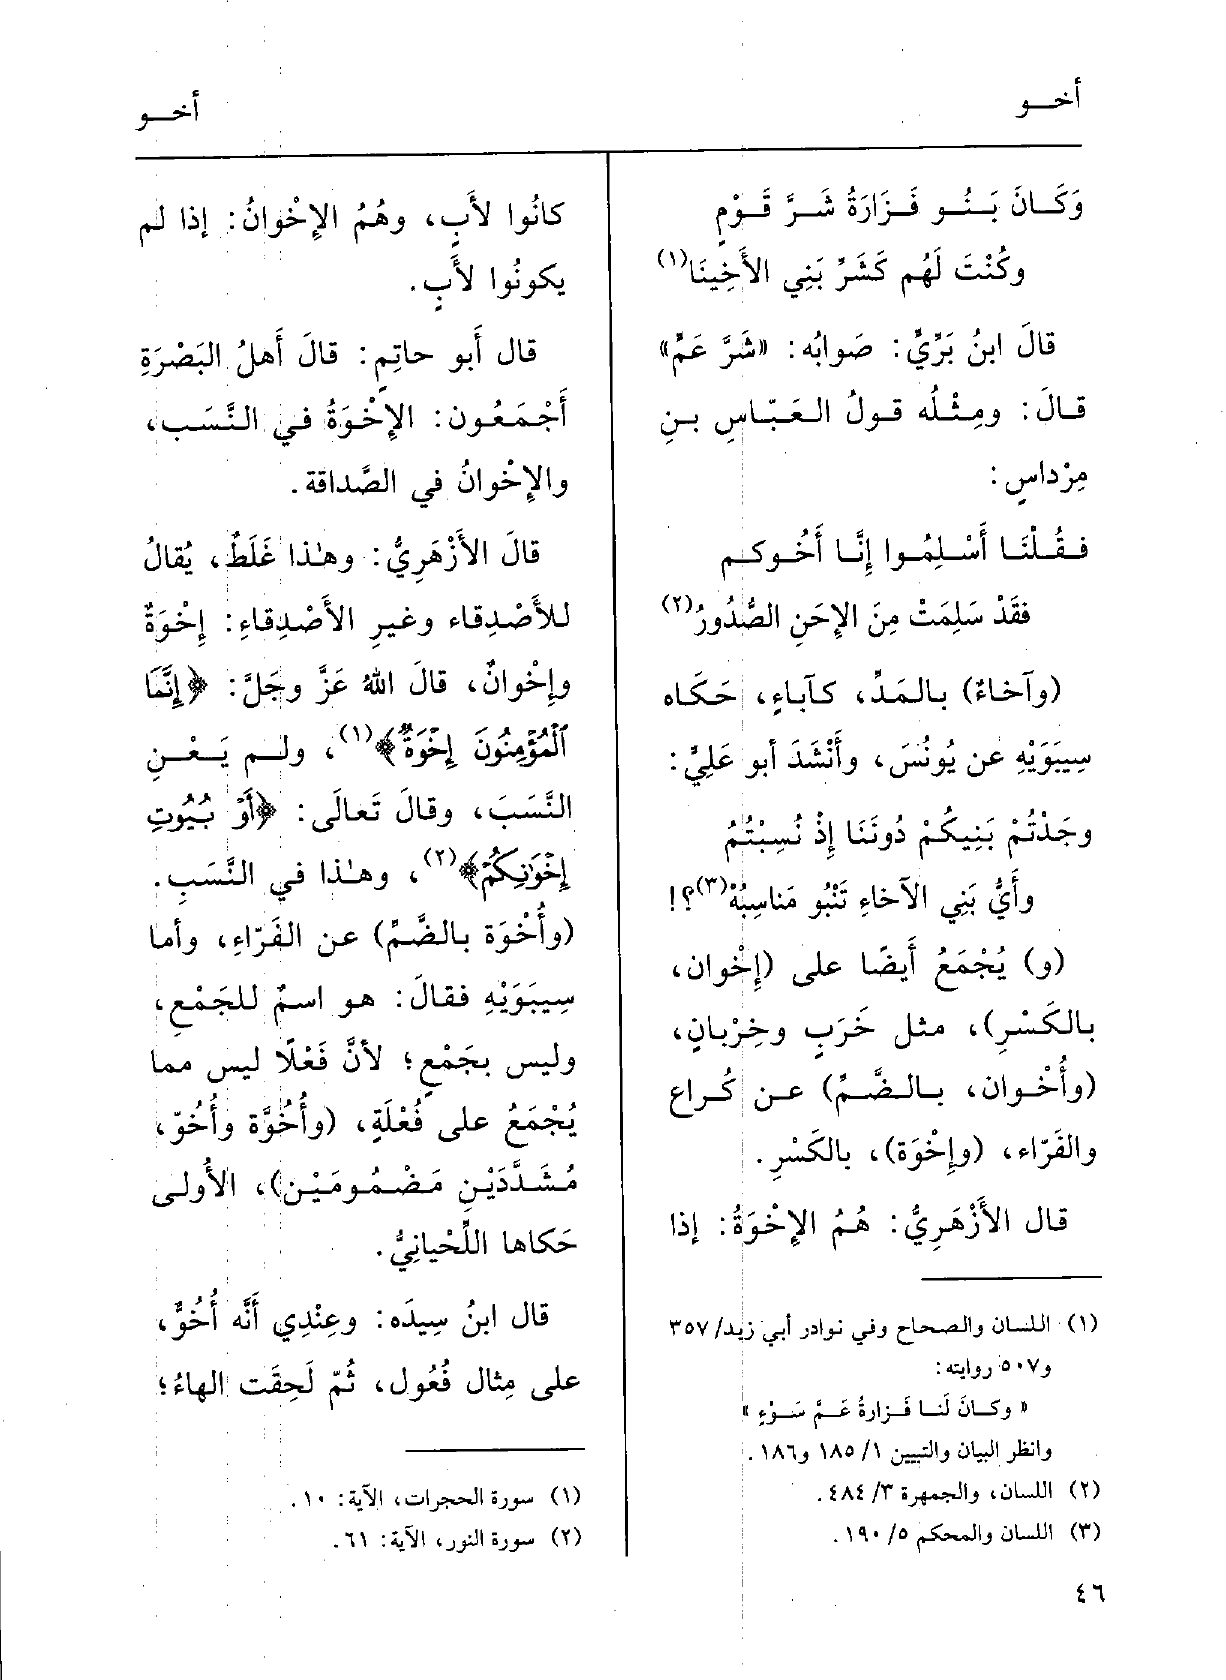 أخـــو
أخـــو
وَكَــانَ بَـنُــو فَــزَارَةُ شَــرَّ قَــوْمٍ
وكُنْتَ لَهُم كَشَرِّ بَنِي الأَخِينَا(١)
قالَ ابنُ بَرِّيٍّ: صَوابُه: «شَرَّ عَمٍّ»
قـالَ: ومِثْـلُه قـولُ العَـبّـاسِ بـنِ
مِرْداسٍ:
فـقُـلْنَـا أَسْـلِمُـوا إِنَّـا أَخُـوكـم
فقَدْ سَلِمَتْ مِنَ الإِحَنِ الصُّدُورُ(٢)
(وآخاءٌ) بالـمَدِّ، كآباءٍ، حَكَاه
سِيبَوَيْهِ عن يُونُسَ، وأَنْشَدَ أبو عَلِيٍّ:
وجَدْتُمْ بَنِيكُمْ دُونَنَا إِذْ نُسِبْتُمُ
وأَيُّ بَنِي الآخاءِ تَنْبُو مَناسِبُهْ(٣)؟!
(و) يُجْمَعُ أَيضًا على (إِخْوان،
بالكَسْرِ)، مثل خَرَبٍ وخِرْبانٍ،
(وأُخْـوان، بـالـضَّـمِّ) عـن كُـراع
والفَرّاء، (وإِخْوَة)، بالكَسْرِ.
قال الأَزْهَرِيُّ: هُمُ الإِخْوَةُ: إذا
(١) اللسان والصحاح وفي نوادر أبي زيد/ ٣٥٧
و٥٠٧ روايته:
« وكـانَ لَنـا فَـزارةُ عَـمَّ سَـوْءٍ »
وانظر البيان والتبيين ١/ ١٨٥ و١٨٦.
(٢) اللسان، والجمهرة ٣/ ٤٨٤.
(٣) اللسان والمحكم ٥/ ١٩٠.
كانُوا لأَبٍ، وهُمُ الإِخْوانُ: إذا لم
يكونُوا لأَبٍ.
قال أَبو حاتِمٍ: قالَ أَهلُ البَصْرَةِ
أَجْمَعُون: الإِخْوَةُ في النَّسَب،
والإِخْوانُ في الصَّداقة.
قالَ الأَزْهَرِيُّ: وهذا غَلَطٌ، يُقالُ
للأَصْدِقاء وغيرِ الأَصْدِقاءِ: إِخْوَةٌ
وإِخْوانٌ، قالَ اللهُ عَزَّ وجَلَّ: ﴿إِنَّمَا
ٱلْمُؤْمِنُونَ إِخْوَةٌ﴾(١)، ولـم يَـعْـنِ
النَّسَبَ، وقالَ تَعالَى: ﴿أَوْ بُيُوتِ
إِخْوَٰنِكُمْ﴾(٢)، وهذا في النَّسَبِ.
(وأُخْوَة بالضَّمِّ) عن الفَرّاءِ، وأما
سِيبَوَيْهِ فقالَ: هو اسمٌ للجَمْعِ،
وليس بجَمْعٍ؛ لأنَّ فَعْلًا ليس مما
يُجْمَعُ على فُعْلَةٍ، (وأُخُوَّة وأُخُوّ،
مُشَدَّدَيْنِ مَضْمُومَيْن)، الأُولى
حَكاها اللِّحْيانِيُّ.
قال ابنُ سِيدَه: وعِنْدِي أَنَّه أُخُوٌّ،
على مِثال فُعُول، ثُمّ لَحِقَت الهاءُ؛
(١) سورة الحجرات، الآية: ١٠.
(٢) سورة النور، الآية: ٦١.
٤٦